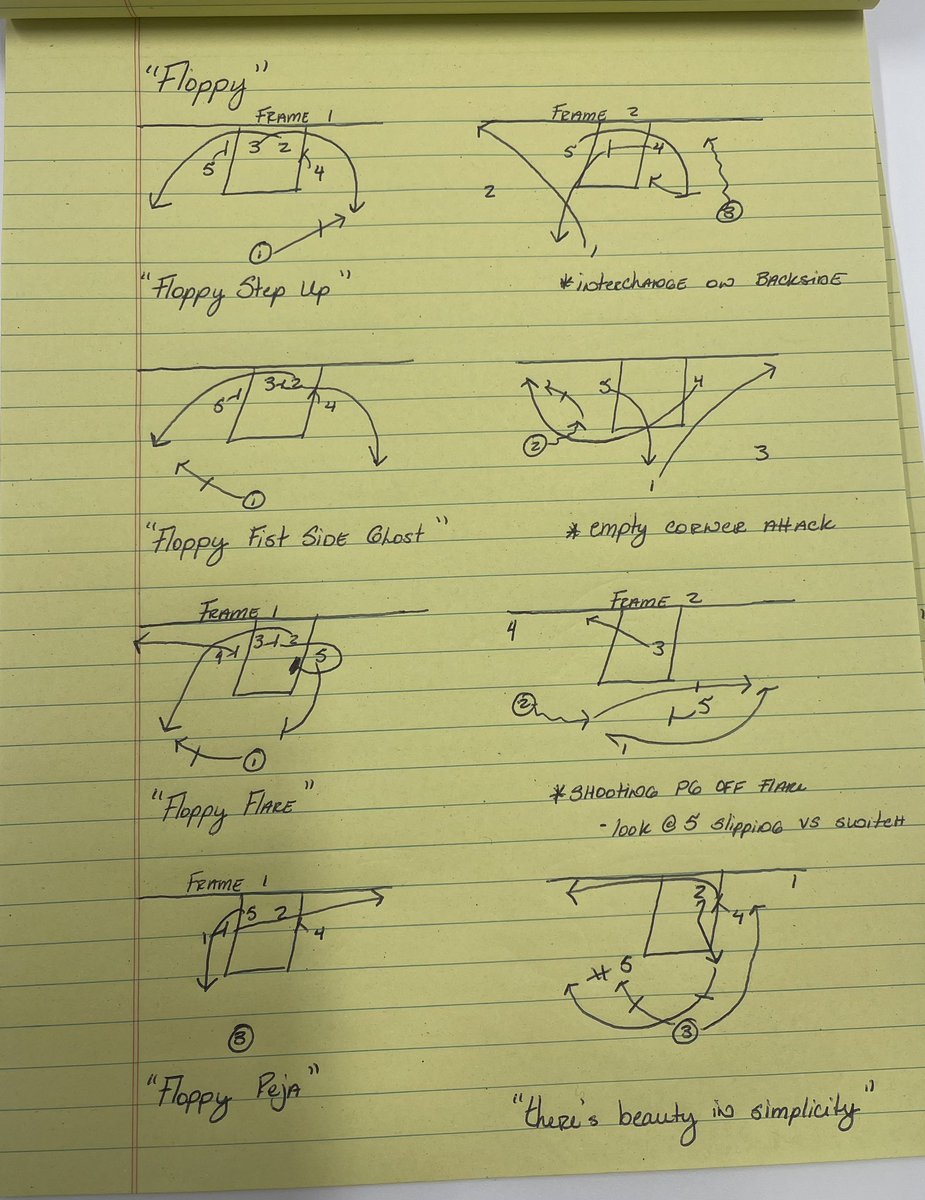 "Floppy"
FRAME 1
5 3 2 4
1
FRAME 2
5 4
2 3
1
"Floppy Step Up"
*INTERCHANGE ON BACKSIDE
3 2
5 4
1
5 4
2
1 3
"Floppy Fist Side Ghost"
*empty CORNER ATTACK
FRAME 1
4 3 2 5
1
FRAME 2
4
3
2 5
1
"Floppy FLARE"
*SHOOTING PG OFF FLARE
-look @ 5 slipping vs switch
FRAME 1
1 5 2 4
3
1
2
4
5
3
"Floppy Peja"
"there's beauty in simplicity"